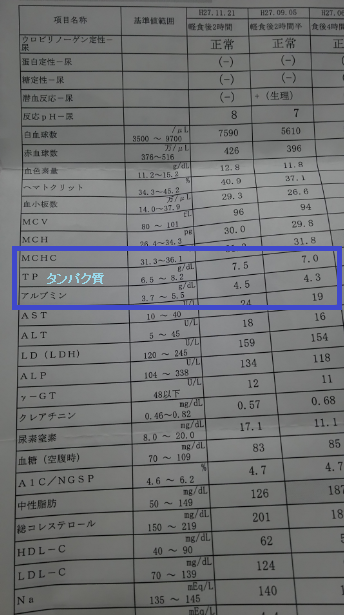 項目名称 基準値範囲 H27.11.21 H27.09.05 H27.0
軽食後2時間 軽食後2時間半 食後4時間
ウロビリノーゲン定性-尿 正常 正常
蛋白定性-尿 (-) (-)
糖定性-尿 (-) (-)
潜血反応-尿 (-) + (生理)
反応pH-尿 8 7
白血球数 /μL 3500 ~ 9700 7590 5610
赤血球数 万/μL 376~516 426 396
血色素量 g/dL 11.2~15.2 12.8 11.8
ヘマトクリット % 34.3~45.2 40.9 37.1
血小板数 万/μL 14.0~37.9 29.3 26.6
MCV fL 80 ~ 101 96 94
MCH pg 26.4~34.3 30.0 29.8
MCHC 31.3~36.1 31.8
TP タンパク質 g/dL 6.5 ~ 8.2 7.5 7.0
アルブミン g/dL 3.7 ~ 5.5 4.5 4.3
AST U/L 10 ~ 40 24 19
ALT U/L 5 ~ 45 18 16
LD (LDH) U/L 120 ~ 245 159 154
ALP U/L 104 ~ 338 134 118
γ-GT U/L 48以下 12 11
クレアチニン mg/dL 0.46~0.82 0.57 0.68
尿素窒素 mg/dL 8.0 ~ 20.0 17.1 11.1
血糖 (空腹時) mg/dL 70 ~ 109 83 85
A1C/NGSP % 4.6 ~ 6.2 4.7 4.7
中性脂肪 mg/dL 50 ~ 149 126 187
総コレステロール mg/dL 150 ~ 219 201 18
HDL-C mg/dL 40 ~ 90 62 5
LDL-C mg/dL 70 ~ 139 124 1
Na mEq/L 135 ~ 145 140 1